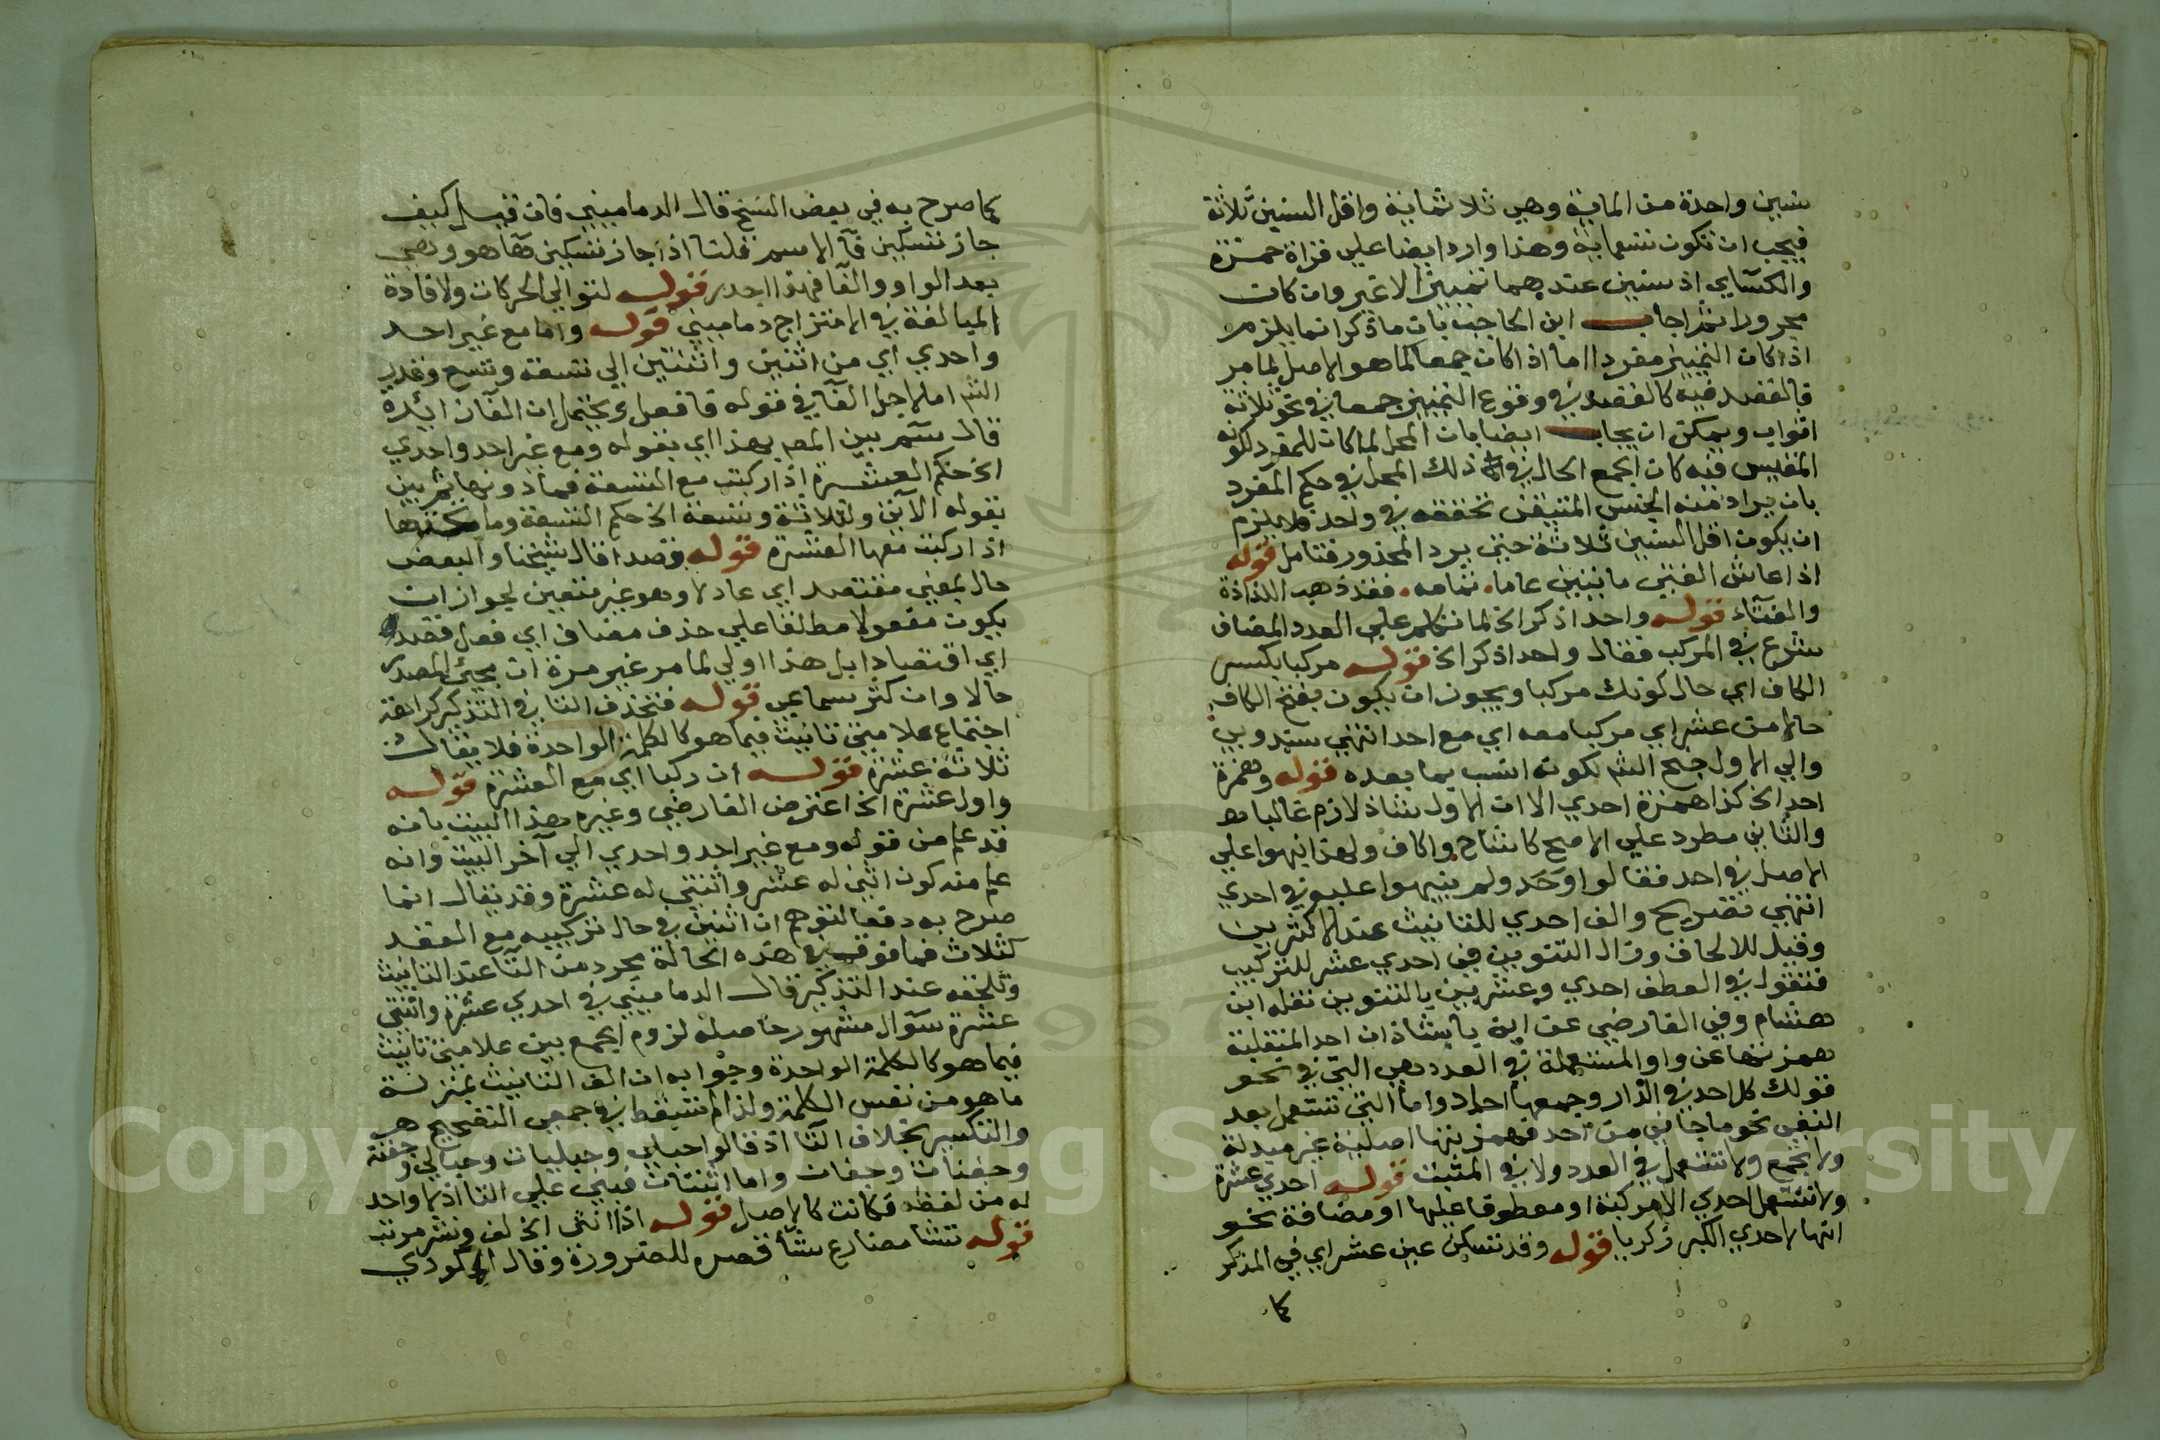 سنين واحدة من الماية وهي ثلاثماية واقل السنين ثلاثة
فيجب ان تكون تسعماية وهذا وارد ايضا علي قراة حمزة
والكسآيي اذ سنين عندهما تمييز لا غير وان كان
مجرورا ثم اجاب ابن الحاجب بان ما ذكر انما يلزم
اذا كان التمييز مفردا اما اذا كان جمعا لما هو الاصل لما مر
فالقصد فيه كالقصد في وقوع التمييز جمعا في نحو ثلاثة
اثواب ويمكن ان يجاب ايضا بان المحل لما كان للمفرد لكونه
المقيس فيه كان الجمع الحال في ذلك المحل في حكم المفرد
بان يراد منه الجنس المتيقن تحققه في واحد فلا يلزم
ان يكون اقل السنين ثلاثة حتي يرد المحذور فتامل قوله
اذا عاش الفتي ماىتين عاما . تمامه . فقد ذهب اللذاذة
والفتآء قوله واحد اذكر الخ لما تكلم علي العدد المضاف
شرع في المركب فقال واحد اذكر الخ قوله مركبا بكسر
الكاف اي حال كونك مركبا ويجوز ان يكون بفتح الكاف
حالا من عشر اي مركبا معه اي مع احد انتهي سندوبي
والي الاول جنح الشم لكونه انسب بما بعده قوله وهمزة
احد الخ كذا همزة احدي الا ان الاول شاذ لازم غالبا
والثاني مطرد علي الاصح كاشاح واكاف ولهذا نبهوا علي
الاصل في احد فقالوا وَحَد ولم ينبهوا عليه في احدي
انتهي تصريح والف احدي للتانيث عند الاكثرين
وقيل للالحاق وزال التنوين في احدي عشر للتركيب
فتقول في العطف احدي وعشرين بالتنوين نقله ابن
هشام وفي الفارضي عن ابن بابشاذ ان احد المنقلبة
همزتها عن واو المستعملة في العدد هي التي في نحو
قولك كل احد في الدار وجمعها احاد واما التي تستعمل بعد
النفي نحو ما جاني من احد فهمزتها اصلية غير مبدلة
ولا تجمع ولا تستعمل في العدد ولا في المثبت قوله احدي عشرة
ولا تستعمل احدي الا مركبة او معطوفا عليها او مضافة نحو
انها لاحدي الكبر زكريا قوله وقد تسكن عين عشر اي في المذكر
كما
كما صرح به في بعض النسخ قال الدماميني فان قيل كيف
جاز تسكين فآ الاسم قلنا اذا جاز تسكين هآ هو وهي
بعد الواو والفا فهذا اجدر قوله لتوالي الحركات ولافادة
المبالغة في الامتزاج دماميني قوله واما مع غير احد
واحدي اي من اثنين واثنتين الي تسعة وتسع وقدر
الشم اما لاجل الفآ في قوله فافعل ويحتمل ان الفآ زائدة
قال سم بين المص بهذا اي بقوله ومع غير احد واحدي
الخ حكم العشرة اذا ركبت مع التسعة فما دونها ثم بين
بقوله الآتي ولثلاثة وتسعة الخ حكم التسعة وما تحتها
اذا ركبت معها العشرة قوله قصدا قال شيخنا والبعض
حال بمعني مقتصد اي عادلا وهو غير متعين لجواز ان
يكون مفعولا مطلقا علي حذف مضاف اي فعل قصد
اي اقتصاد ا بل هذا اولي لما مر غير مرة ان مجيئ المصدر
حالا وان كثر سماعي قوله فتحذف التا في التذكير كراهة
اجتماع علامتي تانيث فيما هو كالكلمة الواحدة فلا يقال
ثلاثة عشرة قوله ان ركبا اي مع العشرة قوله
واول عشرة الخ اعترض الفارضي وغيره هذا البيت بانه
قد علم من قوله ومع غير احد واحدي الي آخر البيت وانه
علم منه كون اثني له عشر واثنتي له عشرة وقد يقال انما
صرح به دفعا لتوهم ان اثنين في حال تركيبه مع العقد
كثلاث فما فوق في هذه الحالة مجرد من التآ عند التانيث
وتلحقه عند التذكير قال الدماميني في احدي عشرة واثنتي
عشرة سؤال مشهور حاصله لزوم الجمع بين علامتي تانيث
فيما هو كالكلمة الواحدة وجوابه ان الف التانيث بمنزلة
ما هو من نفس الكلمة ولذا لم تسقط في جمعي التصحيح
والتكسير بخلاف التا اذ قالوا حبلي وحبليات وحبالي وجفنة
وجفنات وجفان واما اثنتان فبني علي التا اذ لا واحد
له من لفظه فكانت كالاصل قوله اذا انثي الخ لف ونشر مرتب
قوله تشا مضارع شآ قصره للضرورة وقال المكودي
Copyright © King Saud University